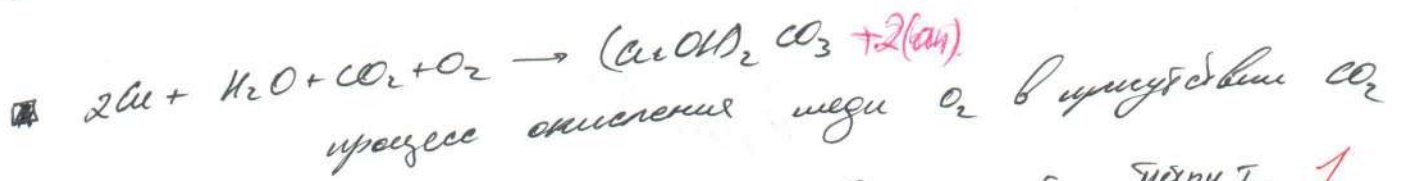 2Cu + H₂O + CO₂ + O₂ → (CuOH)₂ CO₃ +2(би).
процесс окисления меди O₂ в присутствии CO₂
1